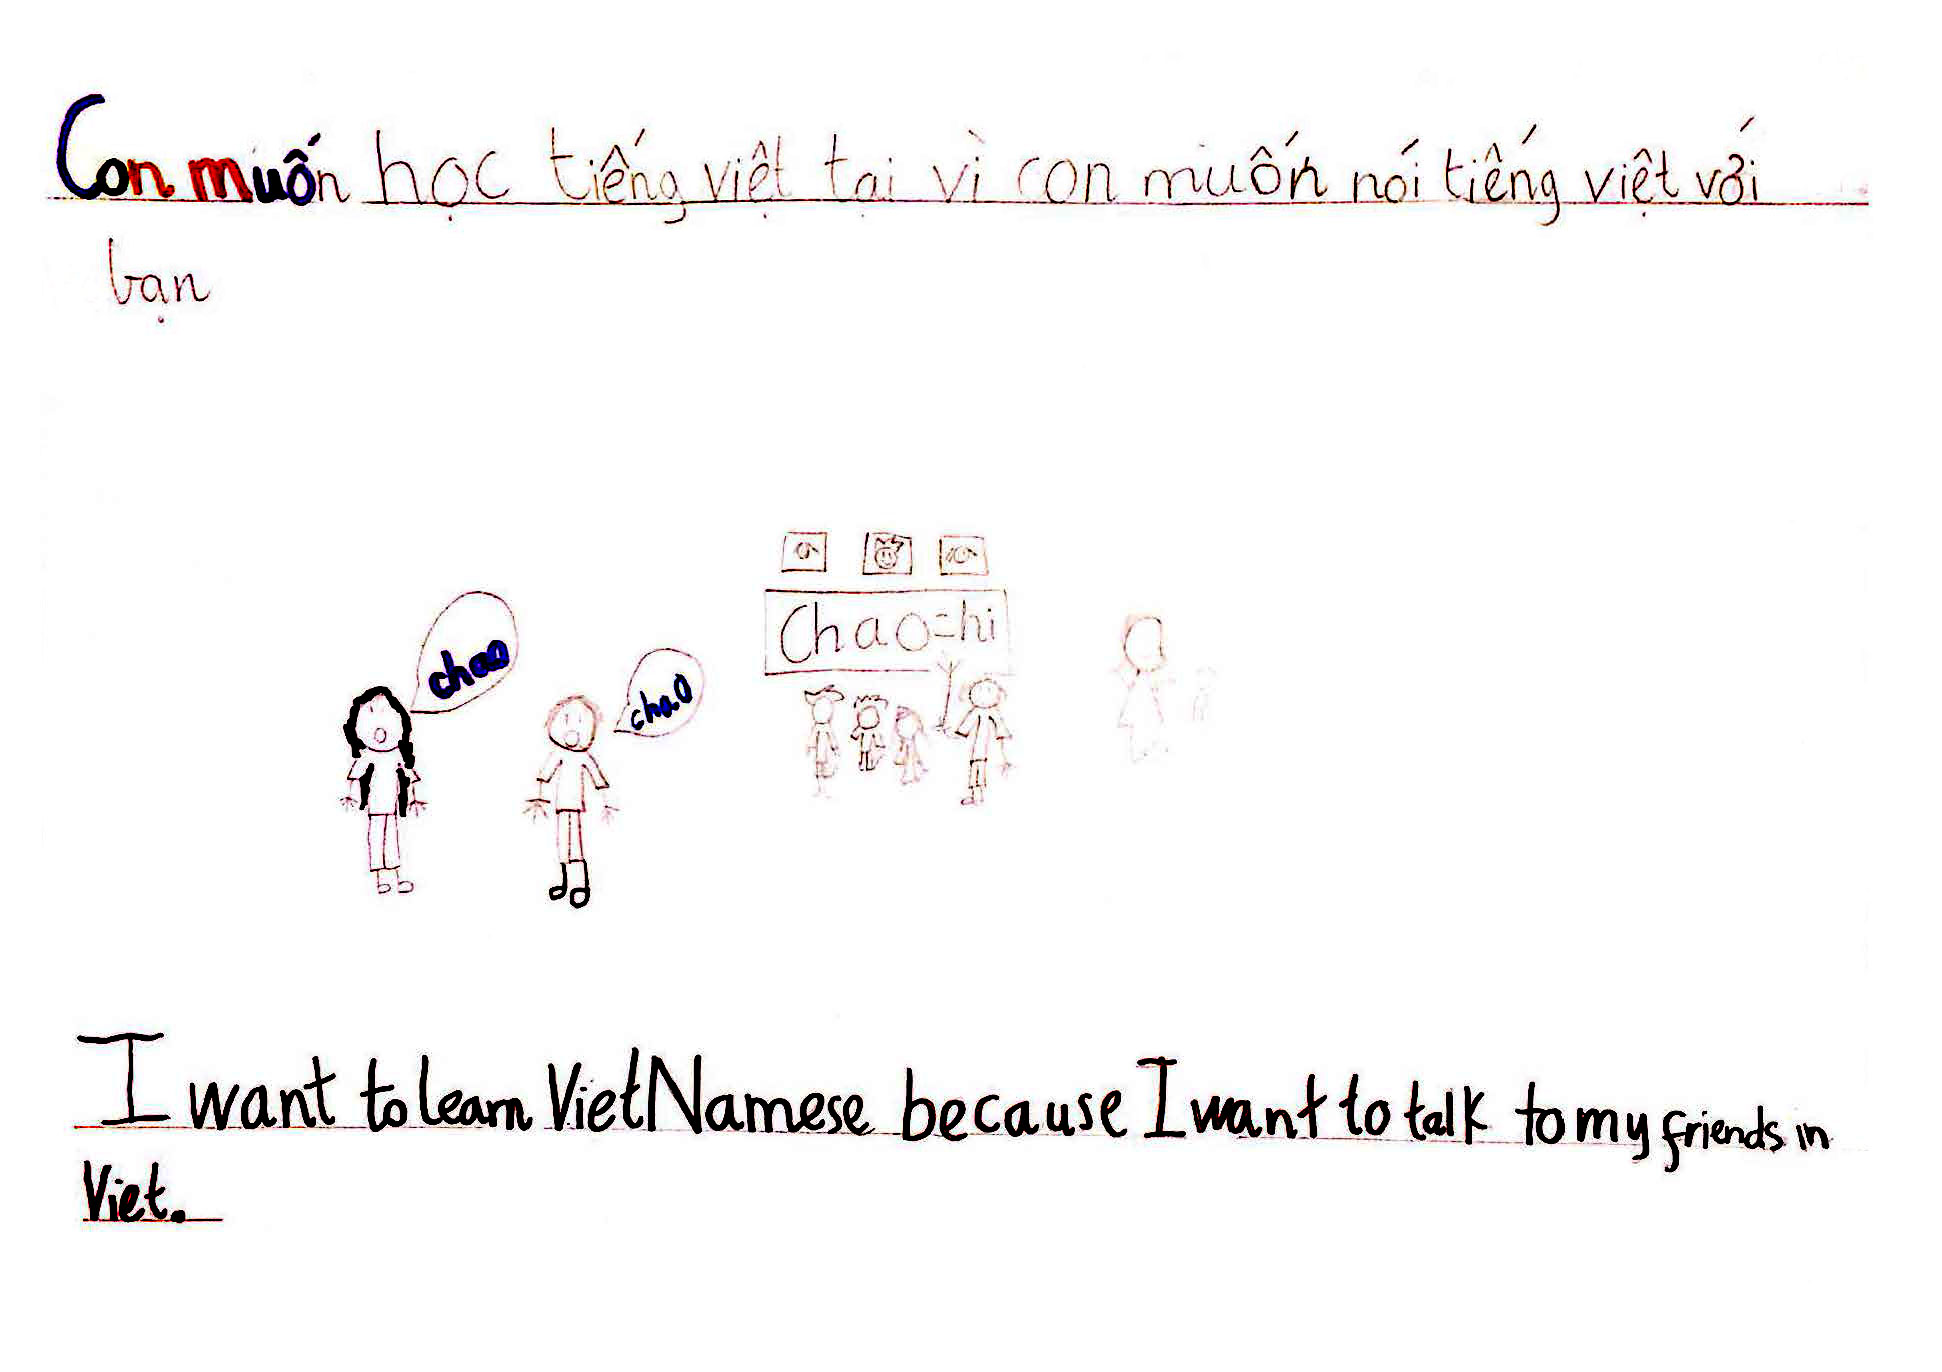 Con muốn học tiếng việt tại vì con muốn nói tiếng việt với
bạn
chao
chao
Chao=hi
I want to learn VietNamese because I want to talk to my friends in
Viet.